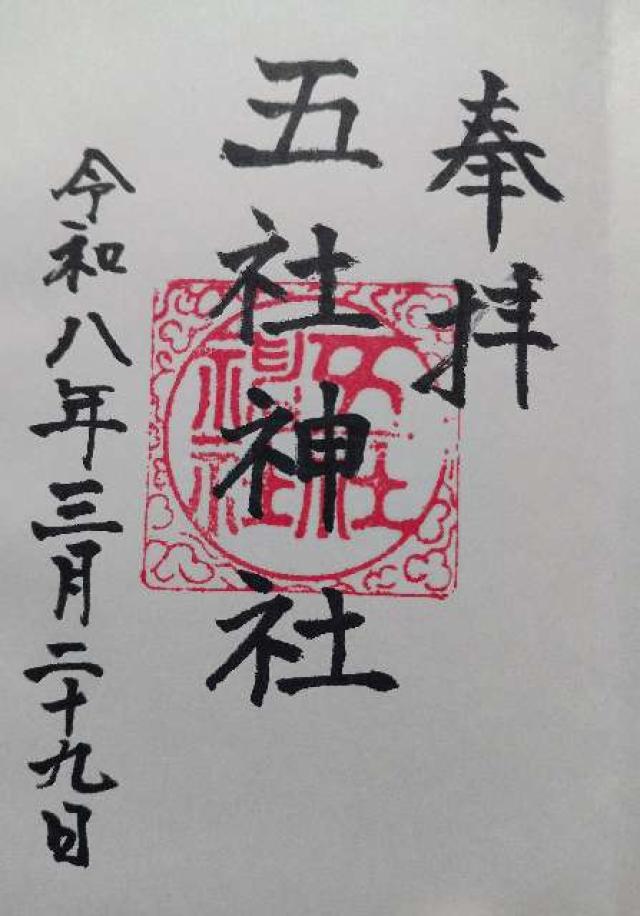 奉拝
五社神社
五社神社
令和八年三月二十九日